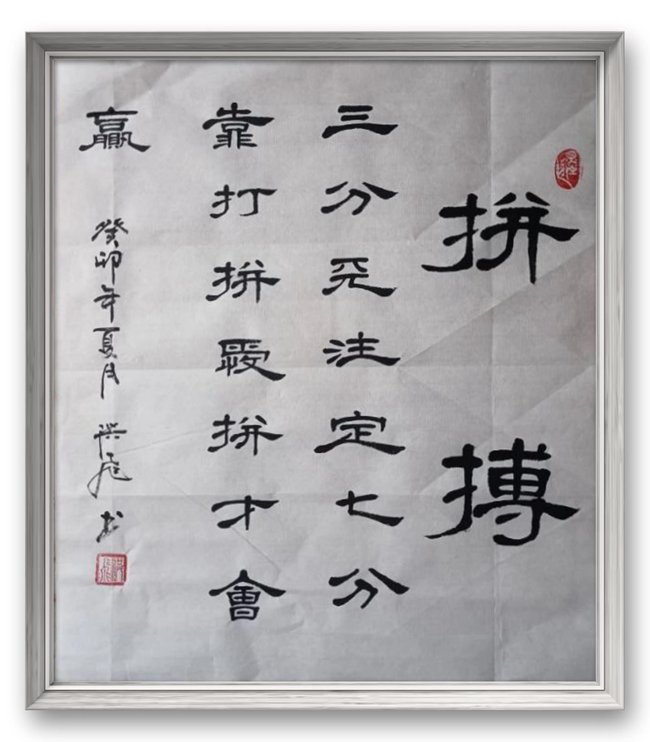 拼搏
三分天注定七分
靠打拼愛拼才會
贏
癸卯年夏月 洪飛书